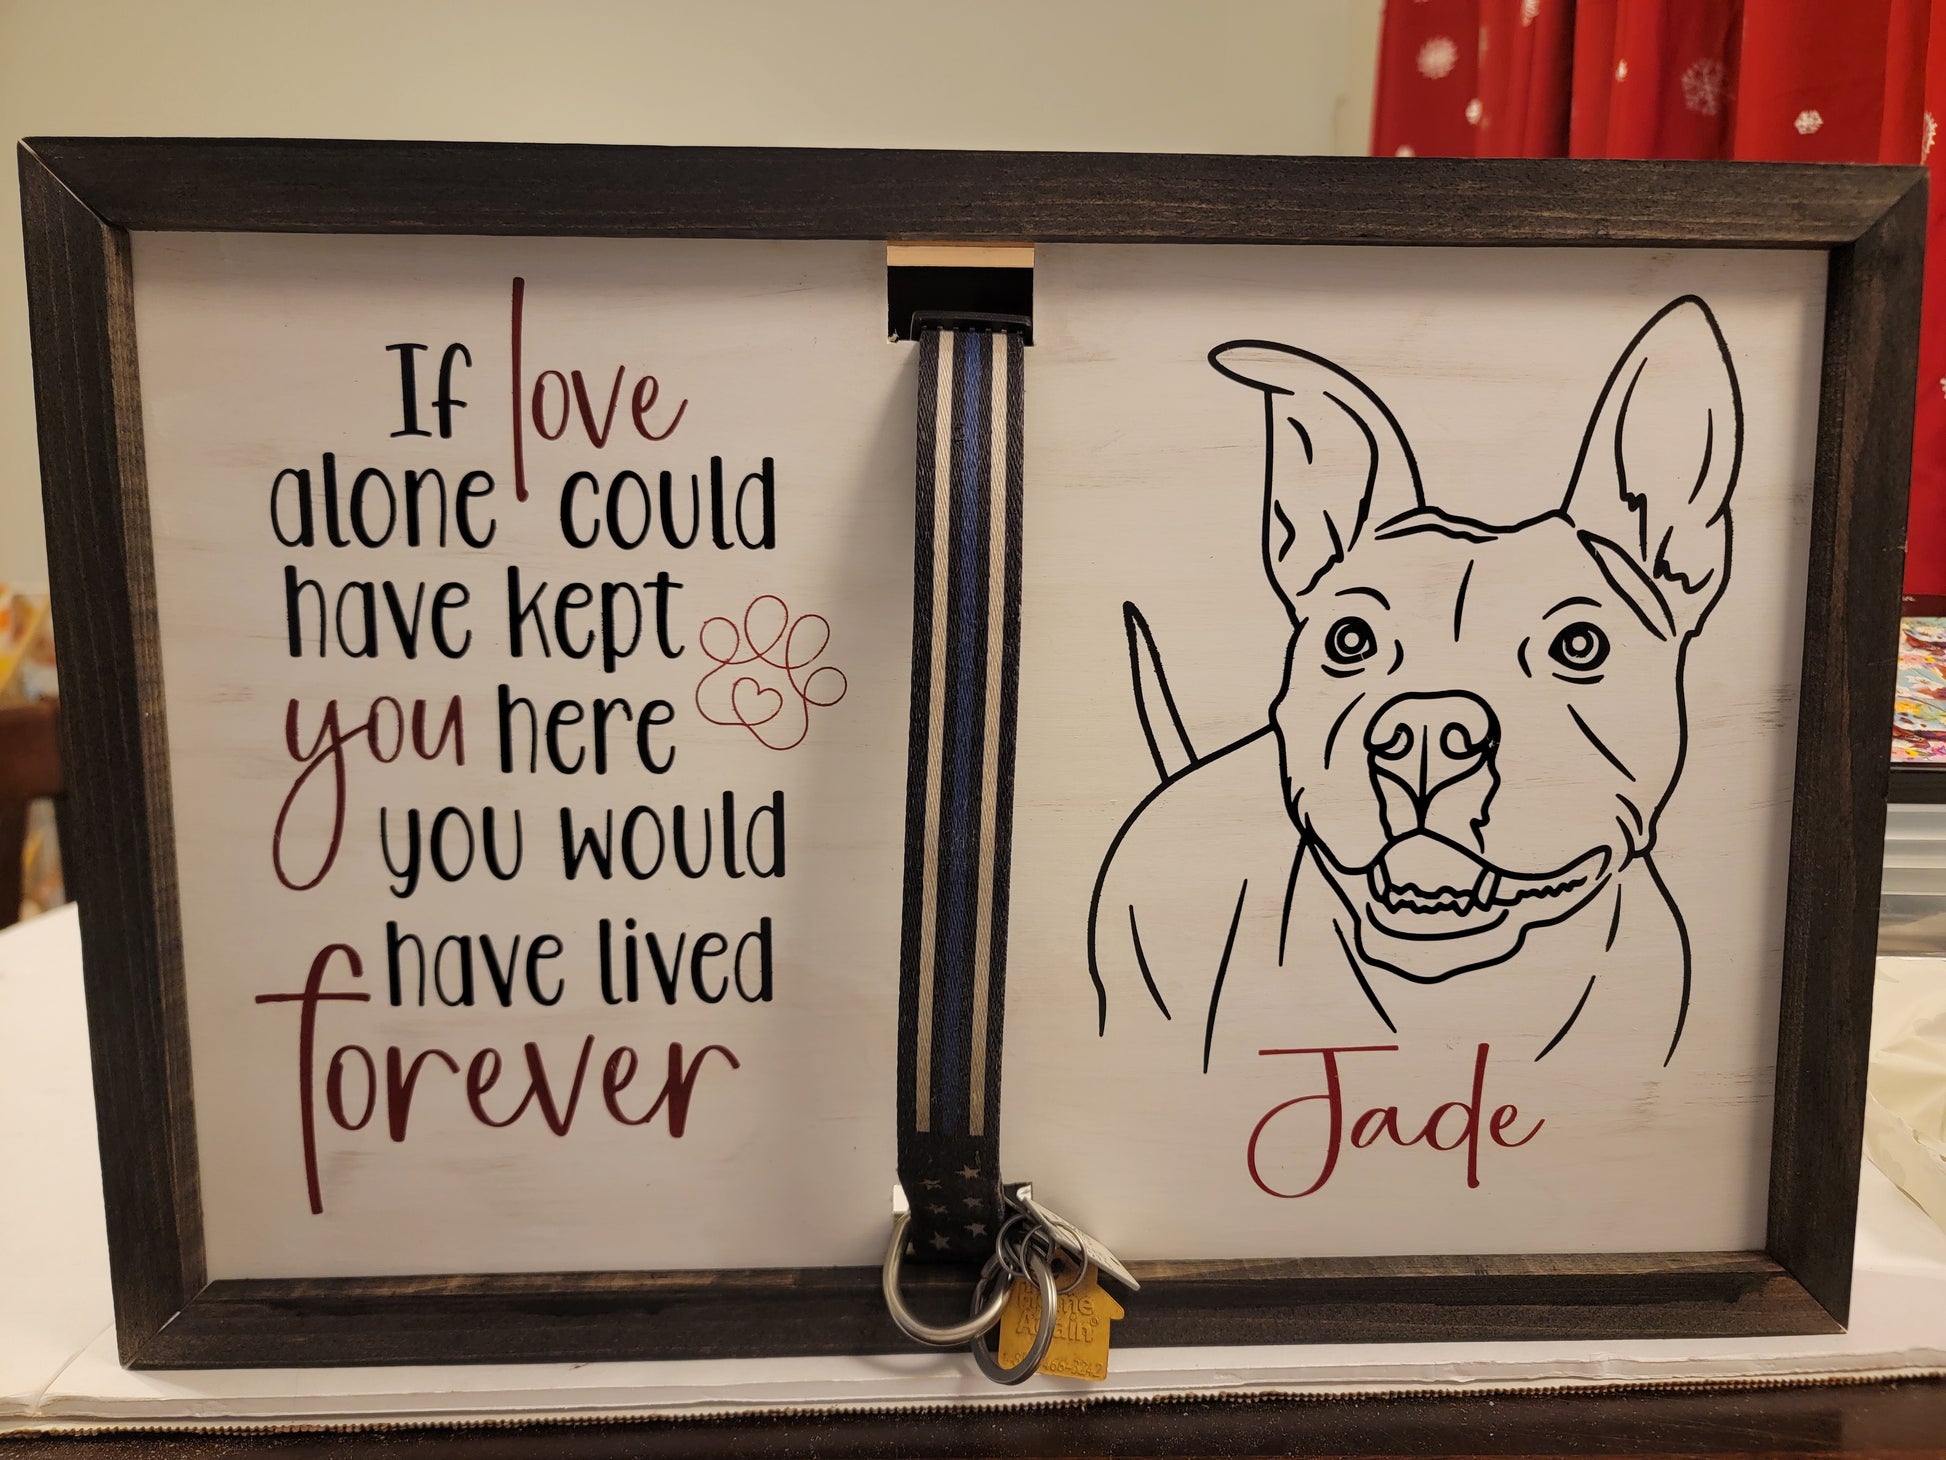 If love
alone could
have kept
you here
you would
have lived
forever
Jade
Home
Again
466-3242